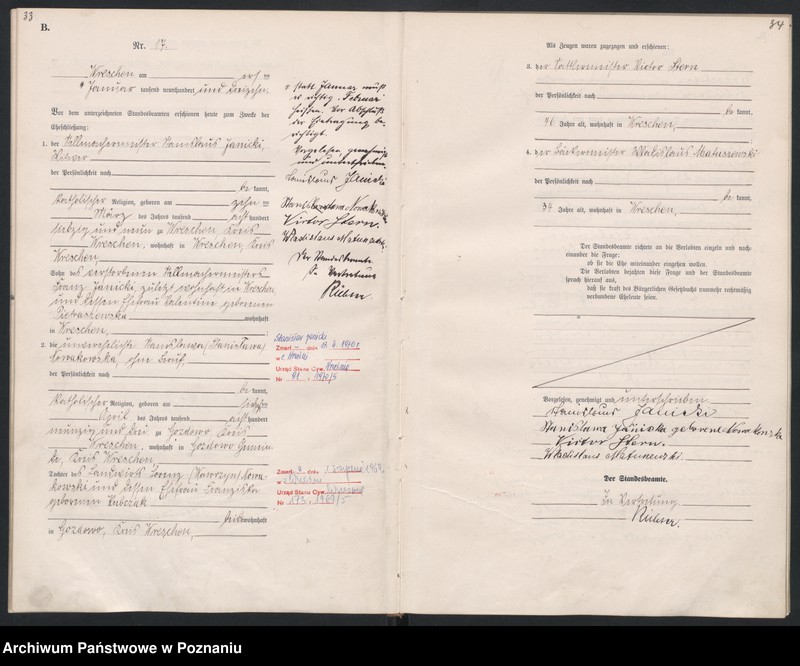 33
B.
Nr. 17.
Wreschen am erst=
Januar tausend neunhundert und dreizehn.
Vor dem unterzeichneten Standesbeamten erschienen heute zum Zwecke der
Eheschließung:
1. der Stellmachermeister Stanislaus Janicki,
der Persönlichkeit nach
be kannt,
katholischer Religion, geboren am zehn=
März des Jahres tausend acht hundert
siebzig und neun zu Wreschen, Kreis
Wreschen, wohnhaft in Wreschen, Kreis
Wreschen,
Sohn des verstorbenen Stellmachermeisters
Franz Janicki, zuletzt wohnhaft in Wreschen
und dessen Ehefrau Valentine geborenen
wohnhaft
in Wreschen,
2. die unverehelichte Stanislawa (Stanisława)
Nowakowska, ohne Beruf,
der Persönlichkeit nach
be kannt,
katholischer Religion, geboren am
April des Jahres tausend acht hundert
neunzig und drei zu Gozdowo, Kreis
Wreschen, wohnhaft in Gozdowo
Kreis Wreschen
Tochter des Landwirts Lorenz (Wawrzyn) Nowa-
kowski und dessen Ehefrau Franziska
geborenen
beide wohnhaft
in Gozdowo, Kreis Wreschen,
statt Januar muß
es richtig Februar
heißen. Vor Abschluß
der Eintragung be-
richtigt.
Vorgelesen, genehmigt
und unterschrieben.
Stanislaus Janicki
Stanisława Nowakowska
Victor Stern.
Wladislaus Matuszewski.
Der Standesbeamte.
In Vertretung
Stanisław Janicki
Zmarł dnia 1970 r
w
Urząd Stanu Cyw.
Nr 91 1970/S
Zmarł a dnia
w
Urząd Stanu Cyw.
Nr 173 1969/S
84
Als Zeugen waren zugezogen und erschienen:
3. der Sattlermeister Victor Stern
der Persönlichkeit nach
be kannt,
46 Jahre alt, wohnhaft in Wreschen,
4. der Bäckermeister Wladislaus Matuszewski
der Persönlichkeit nach
be kannt,
34 Jahre alt, wohnhaft in Wreschen,
Der Standesbeamte richtete an die Verlobten einzeln und nach-
einander die Frage:
ob sie die Ehe miteinander eingehen wollen.
Die Verlobten bejahten diese Frage und der Standesbeamte
sprach hierauf aus,
daß sie kraft des Bürgerlichen Gesetzbuchs nunmehr rechtmäßig
verbundene Eheleute seien.
Vorgelesen, genehmigt und unterschrieben
Stanislaus Janicki
Stanisława Janicka geborene Nowakowska
Victor Stern.
Wladislaus Matuszewski.
Der Standesbeamte.
In Vertretung
Archiwum Państwowe w Poznaniu